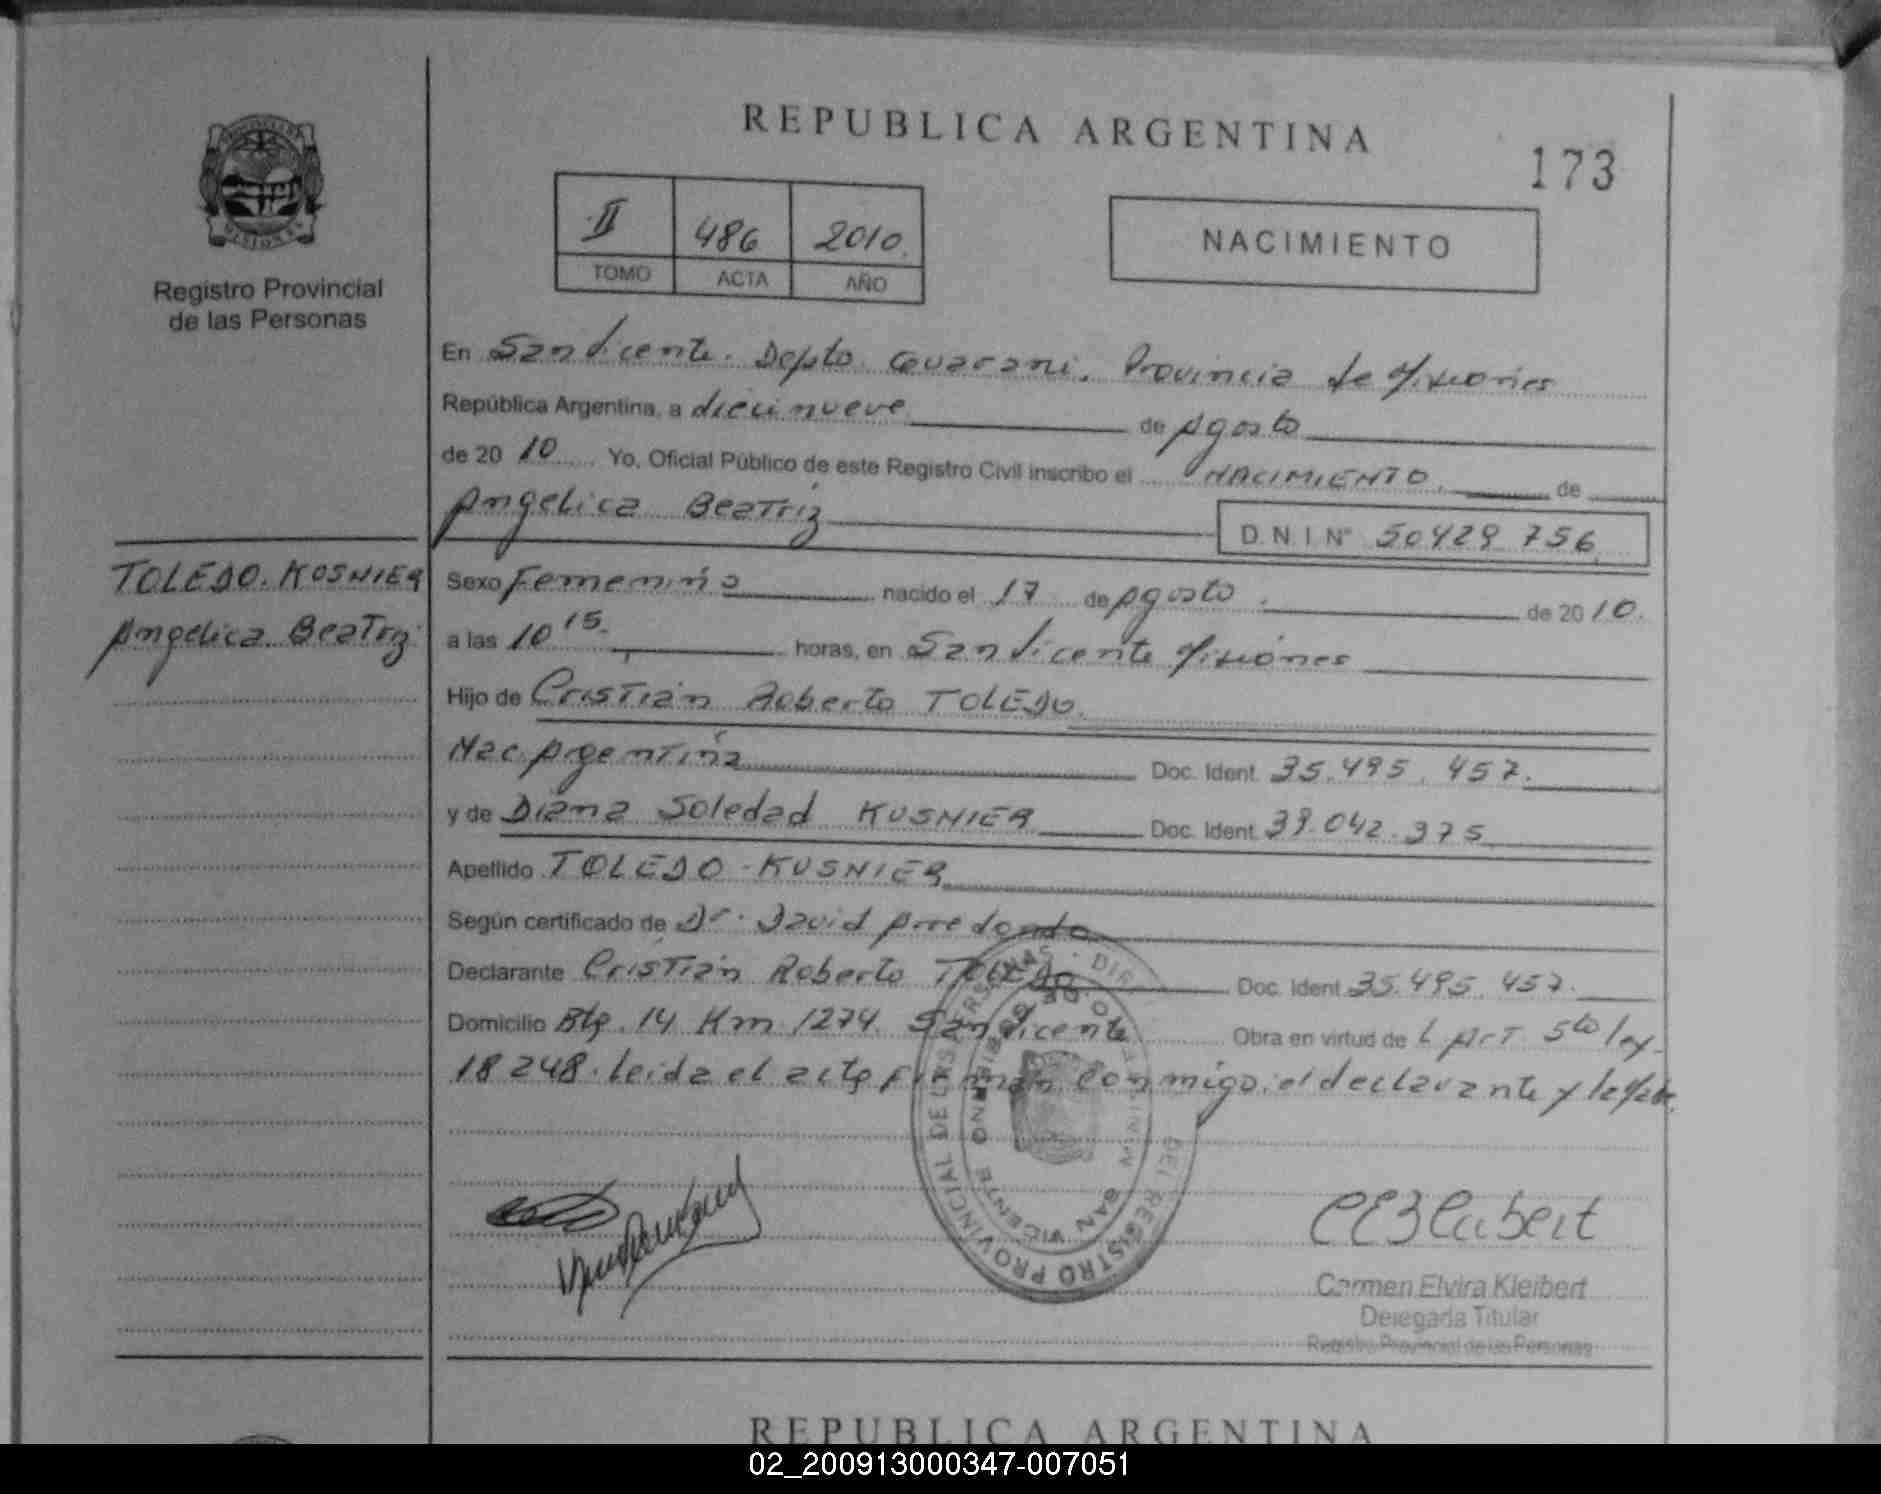 REPUBLICA ARGENTINA
173
II 486 2010
TOMO ACTA AÑO
NACIMIENTO
MISIONES
Registro Provincial
de las Personas
TOLEDO. KUSNIER
Angelica Beatriz
En San Vicente. Depto Guarani. Provincia de Misiones
República Argentina, a diecinueve de Agosto
de 20 10 Yo, Oficial Público de este Registro Civil inscribo el NACIMIENTO de
Angelica Beatriz D.N.I. N° 50429 756
Sexo Femenino nacido el 17 de Agosto de 20 10.
a las 10 15. horas, en San Vicente Misiones
Hijo de Cristian Roberto TOLEDO
Nac. Argentina Doc. Ident. 35.495.457.
y de Diana Soledad KUSNIER Doc. Ident. 39.042.375
Apellido TOLEDO - KUSNIER
Según certificado de Dr. David Arredondo
Declarante Cristian Roberto TOLEDO Doc. Ident. 35.495.457.
Domicilio Bº 14 Km 1274 San Vicente Obra en virtud de L Art 5to ley
18248. Leida el acta firman conmigo el declarante y la
REGISTRO PROVINCIAL DE LAS PERSONAS
SAN VICENTE
CEKleibert
Carmen Elvira Kleibert
Delegada Titular
Registro Provincial de las Personas
REPUBLICA ARGENTINA
02_200913000347-007051